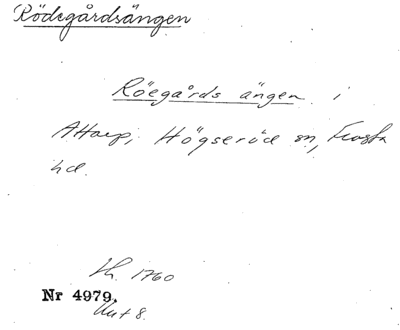 Rödegårdsängen
Röegårds ängen i
Attarp, Högseröd sn, Frosta
hd.
Sk. 1760
Nr 4979.
Aut 8.